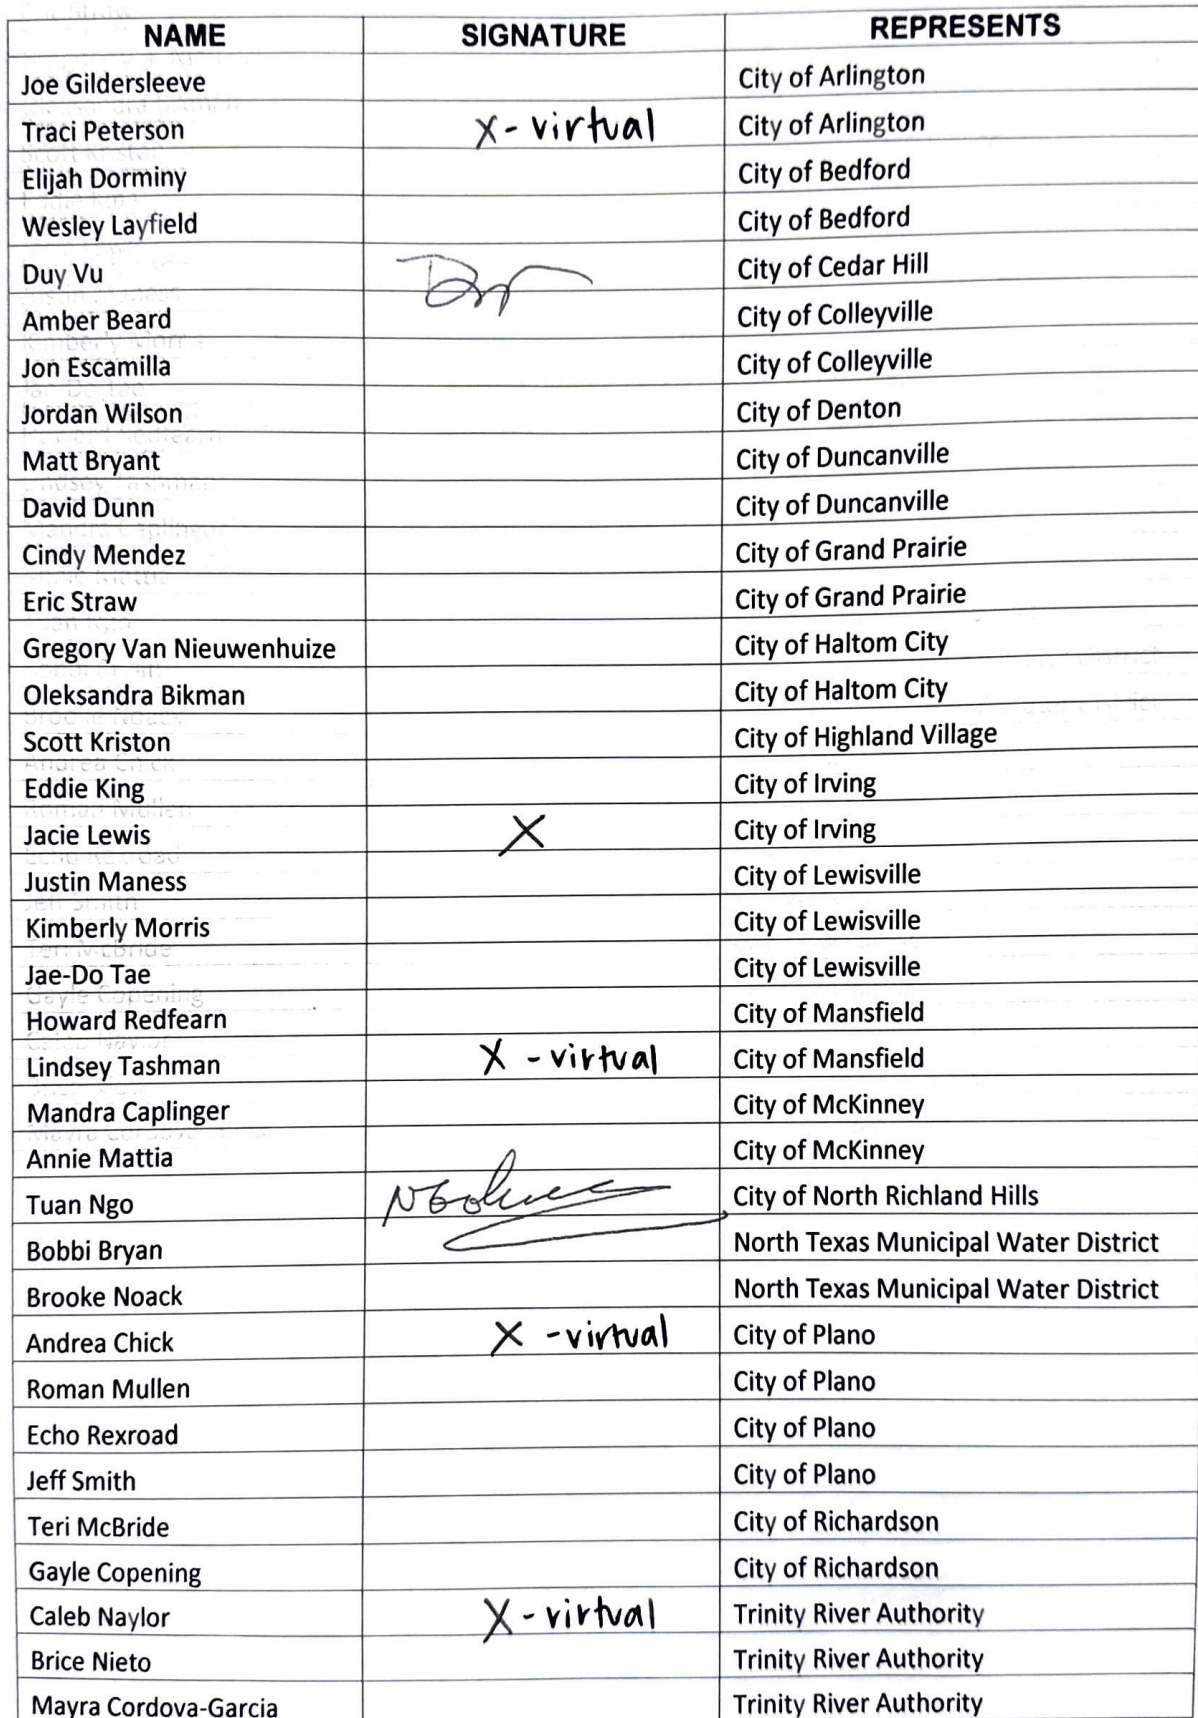 NAME SIGNATURE REPRESENTS
Joe Gildersleeve City of Arlington
Traci Peterson X - virtual City of Arlington
Elijah Dorminy City of Bedford
Wesley Layfield City of Bedford
Duy Vu City of Cedar Hill
Amber Beard City of Colleyville
Jon Escamilla City of Colleyville
Jordan Wilson City of Denton
Matt Bryant City of Duncanville
David Dunn City of Duncanville
Cindy Mendez City of Grand Prairie
Eric Straw City of Grand Prairie
Gregory Van Nieuwenhuize City of Haltom City
Oleksandra Bikman City of Haltom City
Scott Kriston City of Highland Village
Eddie King City of Irving
Jacie Lewis X City of Irving
Justin Maness City of Lewisville
Kimberly Morris City of Lewisville
Jae-Do Tae City of Lewisville
Howard Redfearn City of Mansfield
Lindsey Tashman X - virtual City of Mansfield
Mandra Caplinger City of McKinney
Annie Mattia City of McKinney
Tuan Ngo City of North Richland Hills
Bobbi Bryan North Texas Municipal Water District
Brooke Noack North Texas Municipal Water District
Andrea Chick X - virtual City of Plano
Roman Mullen City of Plano
Echo Rexroad City of Plano
Jeff Smith City of Plano
Teri McBride City of Richardson
Gayle Copening City of Richardson
Caleb Naylor X - virtual Trinity River Authority
Brice Nieto Trinity River Authority
Mayra Cordova-Garcia Trinity River Authority